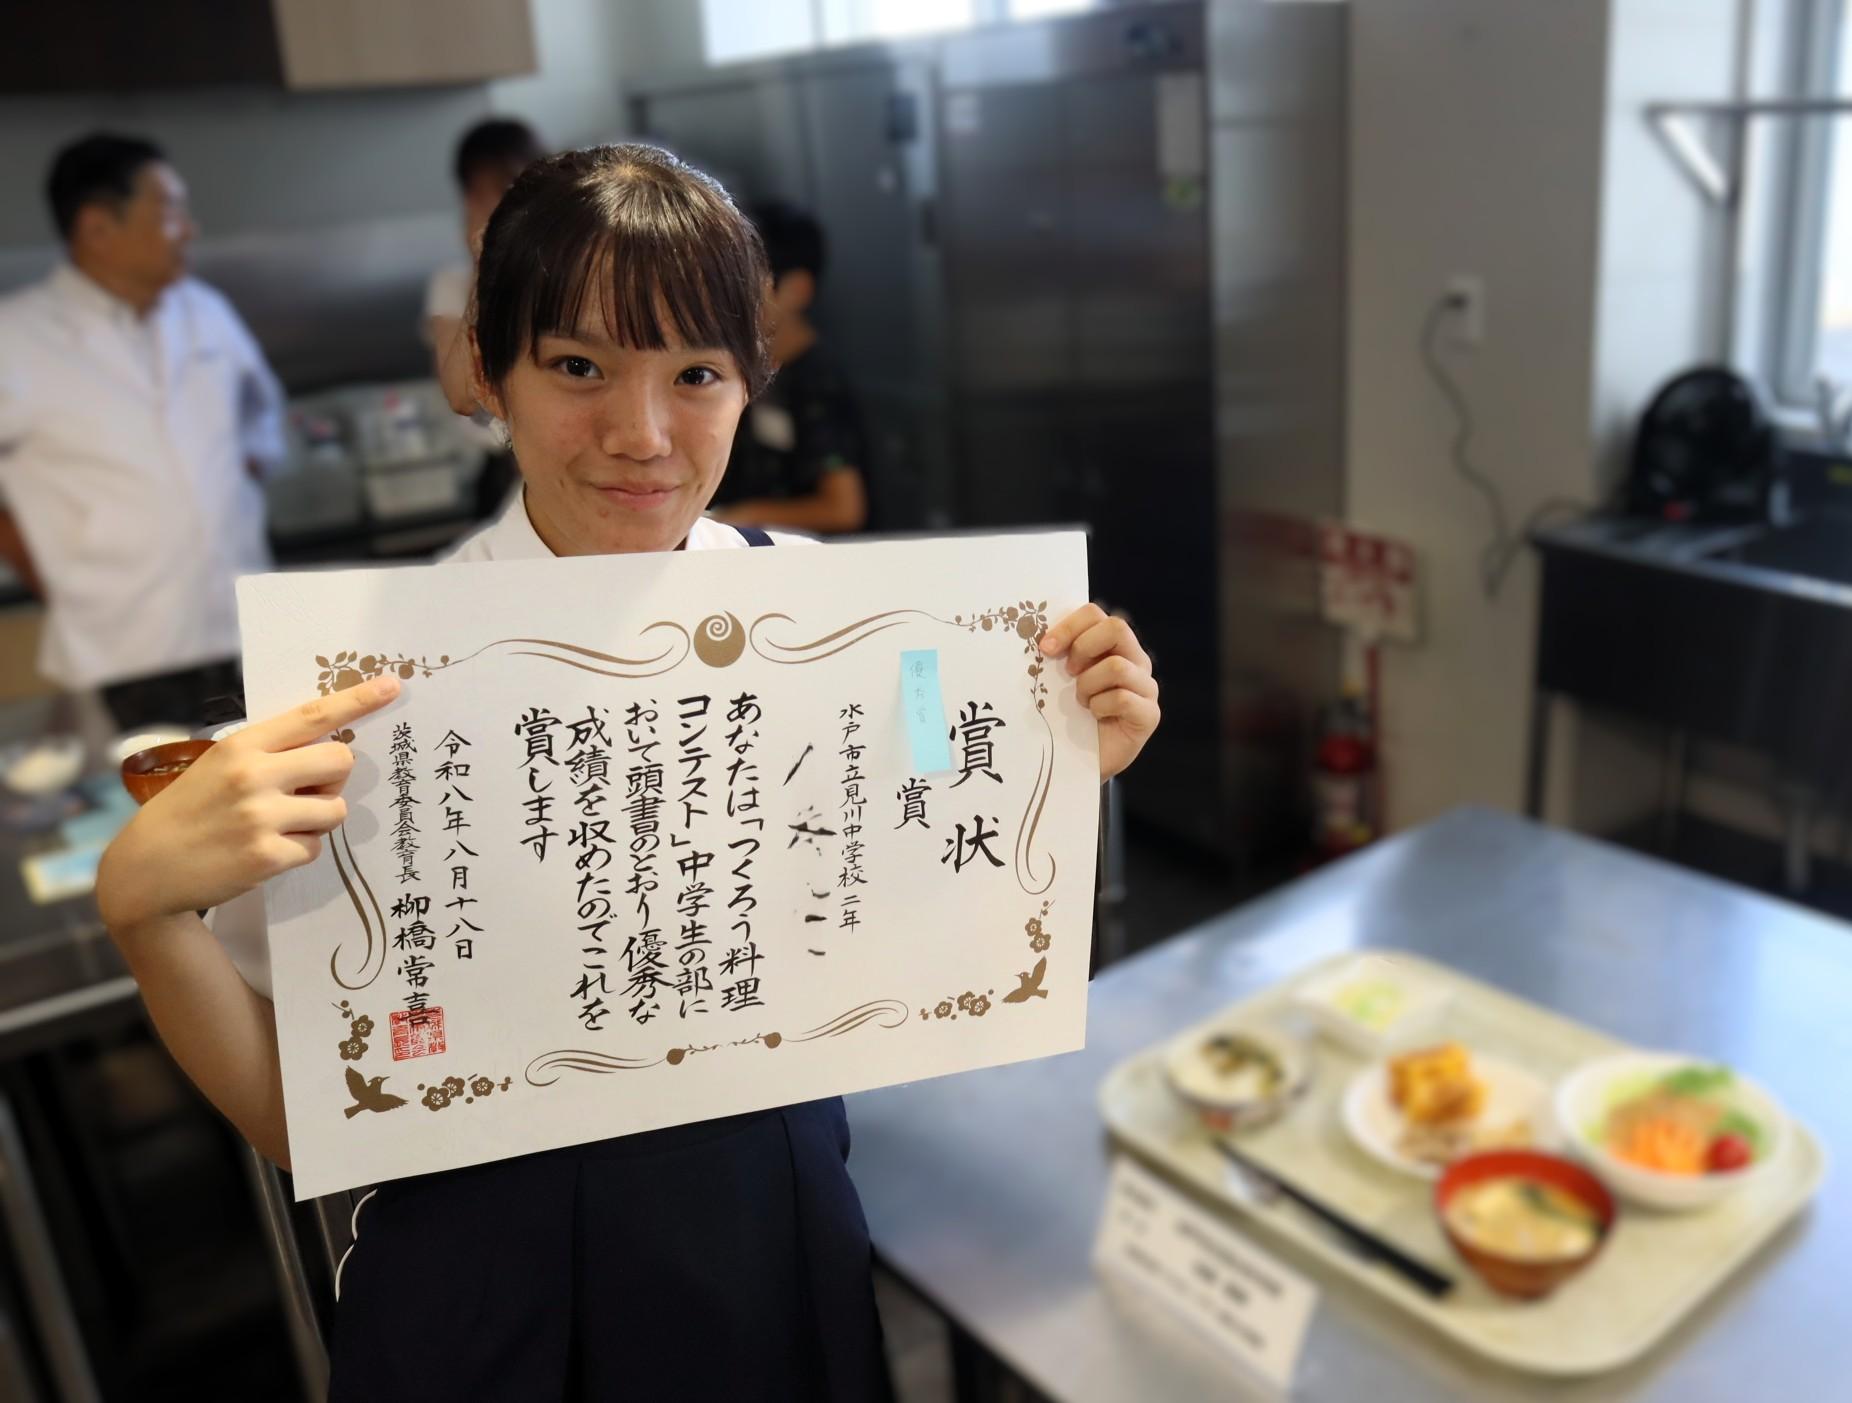 賞状
優秀賞
賞
水戸市立見川中学校 二年
あなたは「つくろう料理
コンテスト」中学生の部に
おいて頭書のとおり優秀な
成績を収めたのでこれを
賞します
令和八年八月十八日
茨城県教育委員会教育長 柳橋常喜